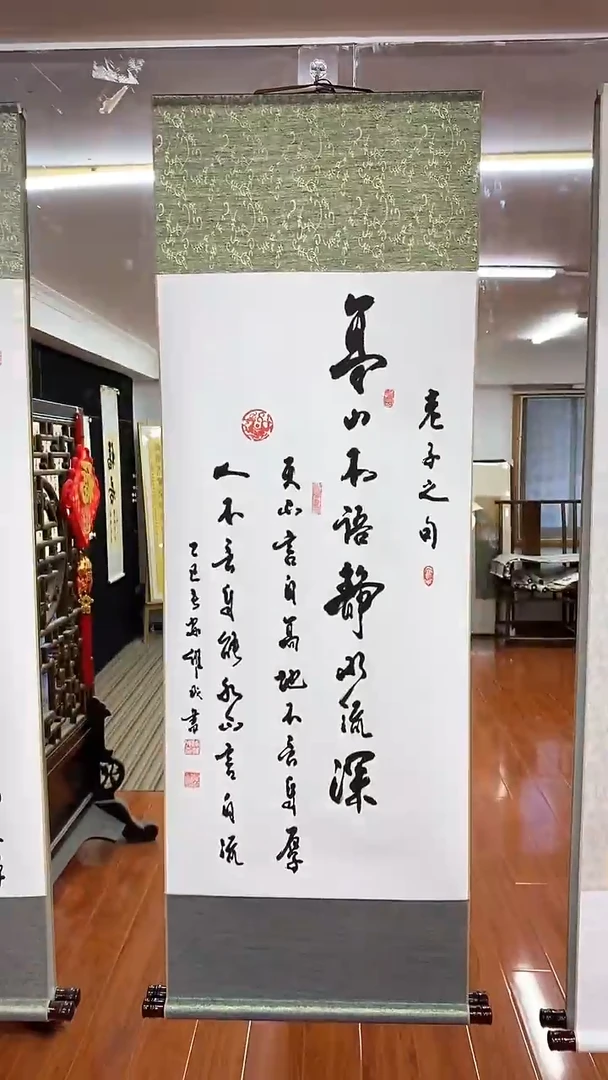 老子之句
高山不語静水流深
天不言自高地不言自厚
人不言自能水不言自流
乙巳書